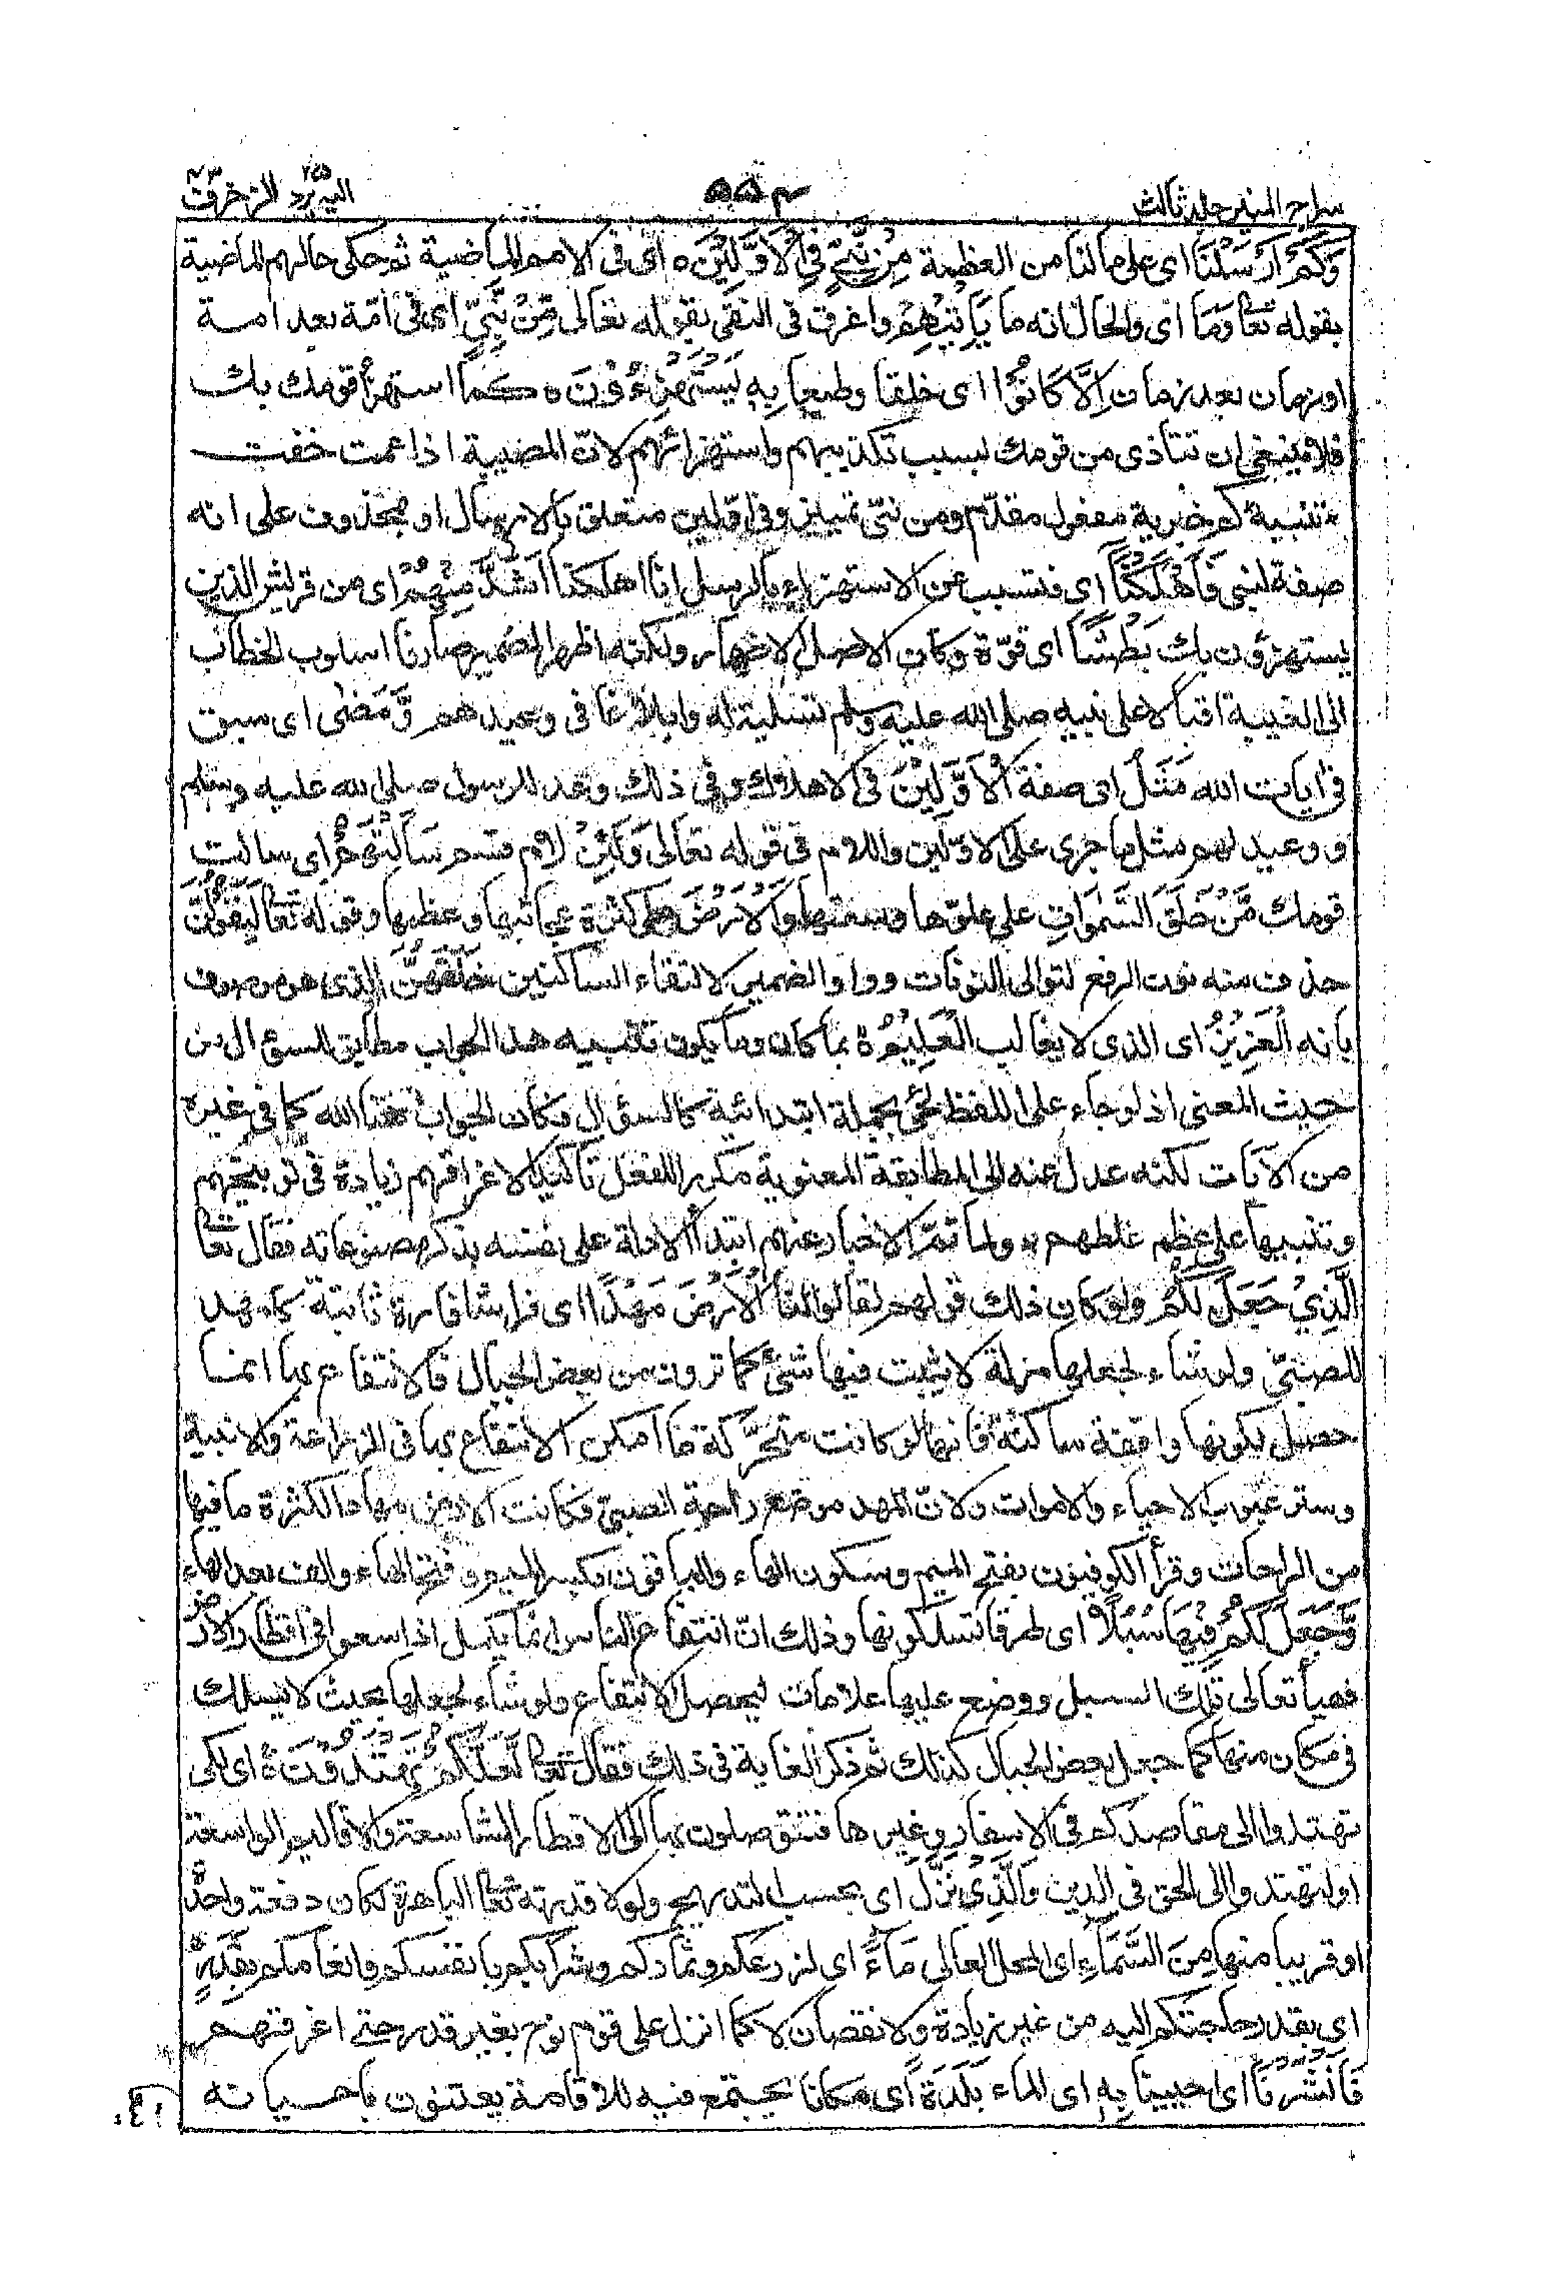 سراج المنير جلد ثالث
۵۵۳
اليه يرد ٢٥ الزخرف ٤٣
وَكَمْ اَرْسَلْنَا اى على ما لنا من العظمة مِنْ نَّبِيٍّ فِي الْاَوَّلِيْنَ ه اى فى الامم الماضية ثم حكى حالهم الماضية
بقوله تعا وَمَا اى والحال انه ما يَاْتِيْهِمْ واغرق فى النفى بقوله تعالى مِّنْ نَّبِيٍّ اى فى امّة بعد امة
او زمان بعد زمان اِلَّا كَانُوْا اى خلقا وطبعا بِهٖ يَسْتَهْزِءُوْنَ ه كما استهزأ قومك بك
فلا ينبغى ان تتأذى من قومك بسبب تكذيبهم واستهزائهم لانّ المصيبة اذا عمت خفت
تنبيه كم خبرية مفعول مقدّم ومن نبىّ تمييز وفى الاوّلين متعلق بالارسال او بمحذوف على انه
صفة لنبى فَاَهْلَكْنَآ اى فتسبب عن الاستهزاء بالرسل انا اهلكنا اَشَدَّ مِنْهُمْ اى من قريش الذين
يستهزؤن بك بَطْشًا اى قوّة وكان الاصل الاضمار ولكنه اظهر الضمير صارفا اسلوب الخطاب
الى الغيبة اقبالا على نبيه صلى الله عليه وسلم تسلية له وابلاغا فى وعيدهم وَّمَضٰى اى سبق
فى ايات الله مَثَلُ اى صفة الْاَوَّلِيْنَ فى الاهلاك وفى ذلك وعد للرسول صلى الله عليه وسلم
ووعيد لهم مثل ما جرى على الاوّلين واللام فى قوله تعالى وَلَئِنْ لام قسم سَاَلْتَهُمْ اى سالت
قومك مَّنْ خَلَقَ السَّمٰوَاتِ على علوّها وسعتها وَالْاَرْضَ على كثرة عجائبها وعظمها وقوله تعا لَيَقُوْلُنَّ
حذف منه نون الرفع لتوالى النونات وواو الضمير لالتقاء الساكنين خَلَقَهُنَّ الذى هو موصوف
بانه الْعَزِيْزُ اى الذى لا يغالب الْعَلِيْمُ ه بما كان وما يكون تنبيه هذا الجواب مطابق للسؤال من
حيث المعنى اذ لو جاء على اللفظ لجئ بجملة ابتدائية كالسؤال وكان الجواب ههنا الله كما فى غيره
من الايات لكنه عدل عنه الى المطابقة المعنوية مكررا للفعل تأكيدا لاغراقهم زيادة فى توبيخهم
وتنبيها على عظم غلطهم ولما تمّ الاخبار عنهم ابتدأ الادلة على نفسه بذكر مصنوعاته فقال تعا
الَّذِيْ جَعَلَ لَكُمُ ولو كان ذلك قولهم لقالوا لنا الْاَرْضَ مَهْدًا اى فراشا قارة ثابتة كالمهد
للصبىّ ولو شاء لجعلها مزلة لا يثبت فيها شئ كما ترون من بعض الجبال فالانتفاع بها انما
حصل لكونها واقفة ساكنة فانها لو كانت متحرّكة ما امكن الانتفاع بها فى الزراعة والابنية
وستر عيوب الاحياء والاموات ولانّ المهد موضع راحة الصبىّ فكانت الارض مهادا لكثرة ما فيها
من الراحات وقرأ الكوفيون بفتح الميم وسكون الهاء والباقون بكسر الميم وفتح الهاء والف بعد الهاء
وَّجَعَلَ لَكُمْ فِيْهَا سُبُلًا اى طرقا تسلكونها وذلك انّ انتفاع الناس انما يكمل اذا سعوا فى اقطار الارض
فهيأ تعالى تلك السبل ووضع عليها علامات ليحصل الانتفاع ولو شاء لجعلها بحيث لا يسلك
فى مكان منها كما جعل بعض الجبال كذلك ثم ذكر الغاية فى ذلك فقال تعا لَّعَلَّكُمْ تَهْتَدُوْنَ ه اى لكى
تهتدوا الى مقاصدكم فى الاسفار وغيرها فتتوصلون بها الى الاقطار الشاسعة والاقاليم الواسعة
او لتهتدوا الى الحق فى الدين وَالَّذِيْ نَزَّلَ اى بحسب التدريج ولولا قدرته تعا الباهرة لكان دفعة واحدة
او قريبا منها مِنَ السَّمَآءِ اى المحل العالى مَآءً اى لزرعكم وثماركم وشرابكم بانفسكم وانعامكم بِقَدَرٍ
اى بقدر حاجتكم اليه من غير زيادة ولا نقصان لا كما انزل على قوم نوح بغير قدر حتى اغرقتهم
فَاَنْشَرْنَا اى احيينا بِهٖ اى الماء بَلْدَةً اى مكانا يجتمع فيه للاقامة يعتنون باحيائه